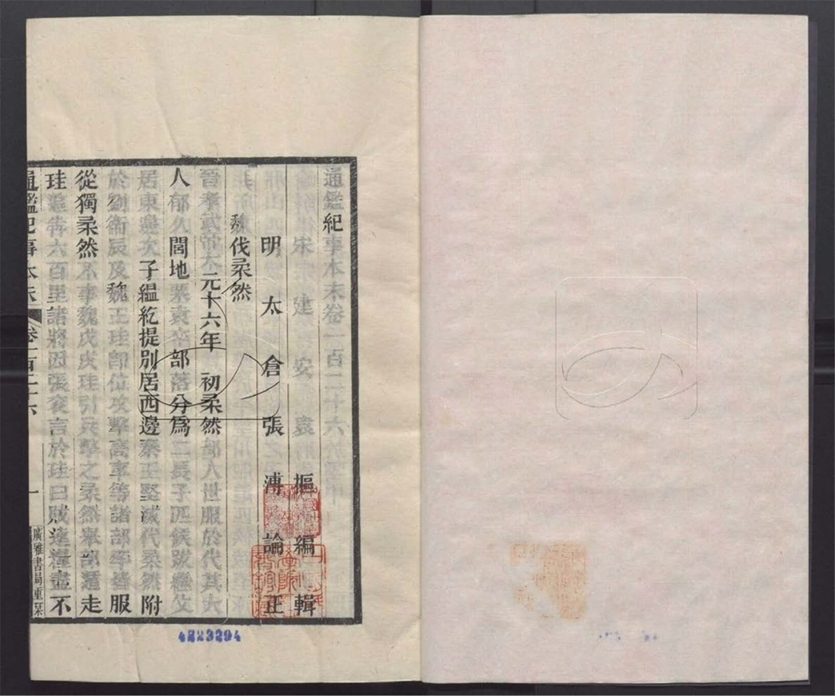 通鑑紀事本末卷一百二十六
宋建安袁樞編輯
明太倉張溥論正
魏伐柔然
晉孝武帝太元十六年 初柔然部人世服於代其大
人郁久閭地粟袁卒部落分爲二長子匹候跋繼父
居東邊次子縕紇提別居西邊秦王堅滅代柔然附
於劉衞辰及魏王珪卽位攻擊高車等諸部率皆服
從獨柔然不事魏戊戌珪引兵擊之柔然舉部遁走
珪追奔六百里諸將因張袞言於珪曰賊遠糧盡不
通鑑紀事本末 卷一百二十六 一 廣雅書局重栞
4223294